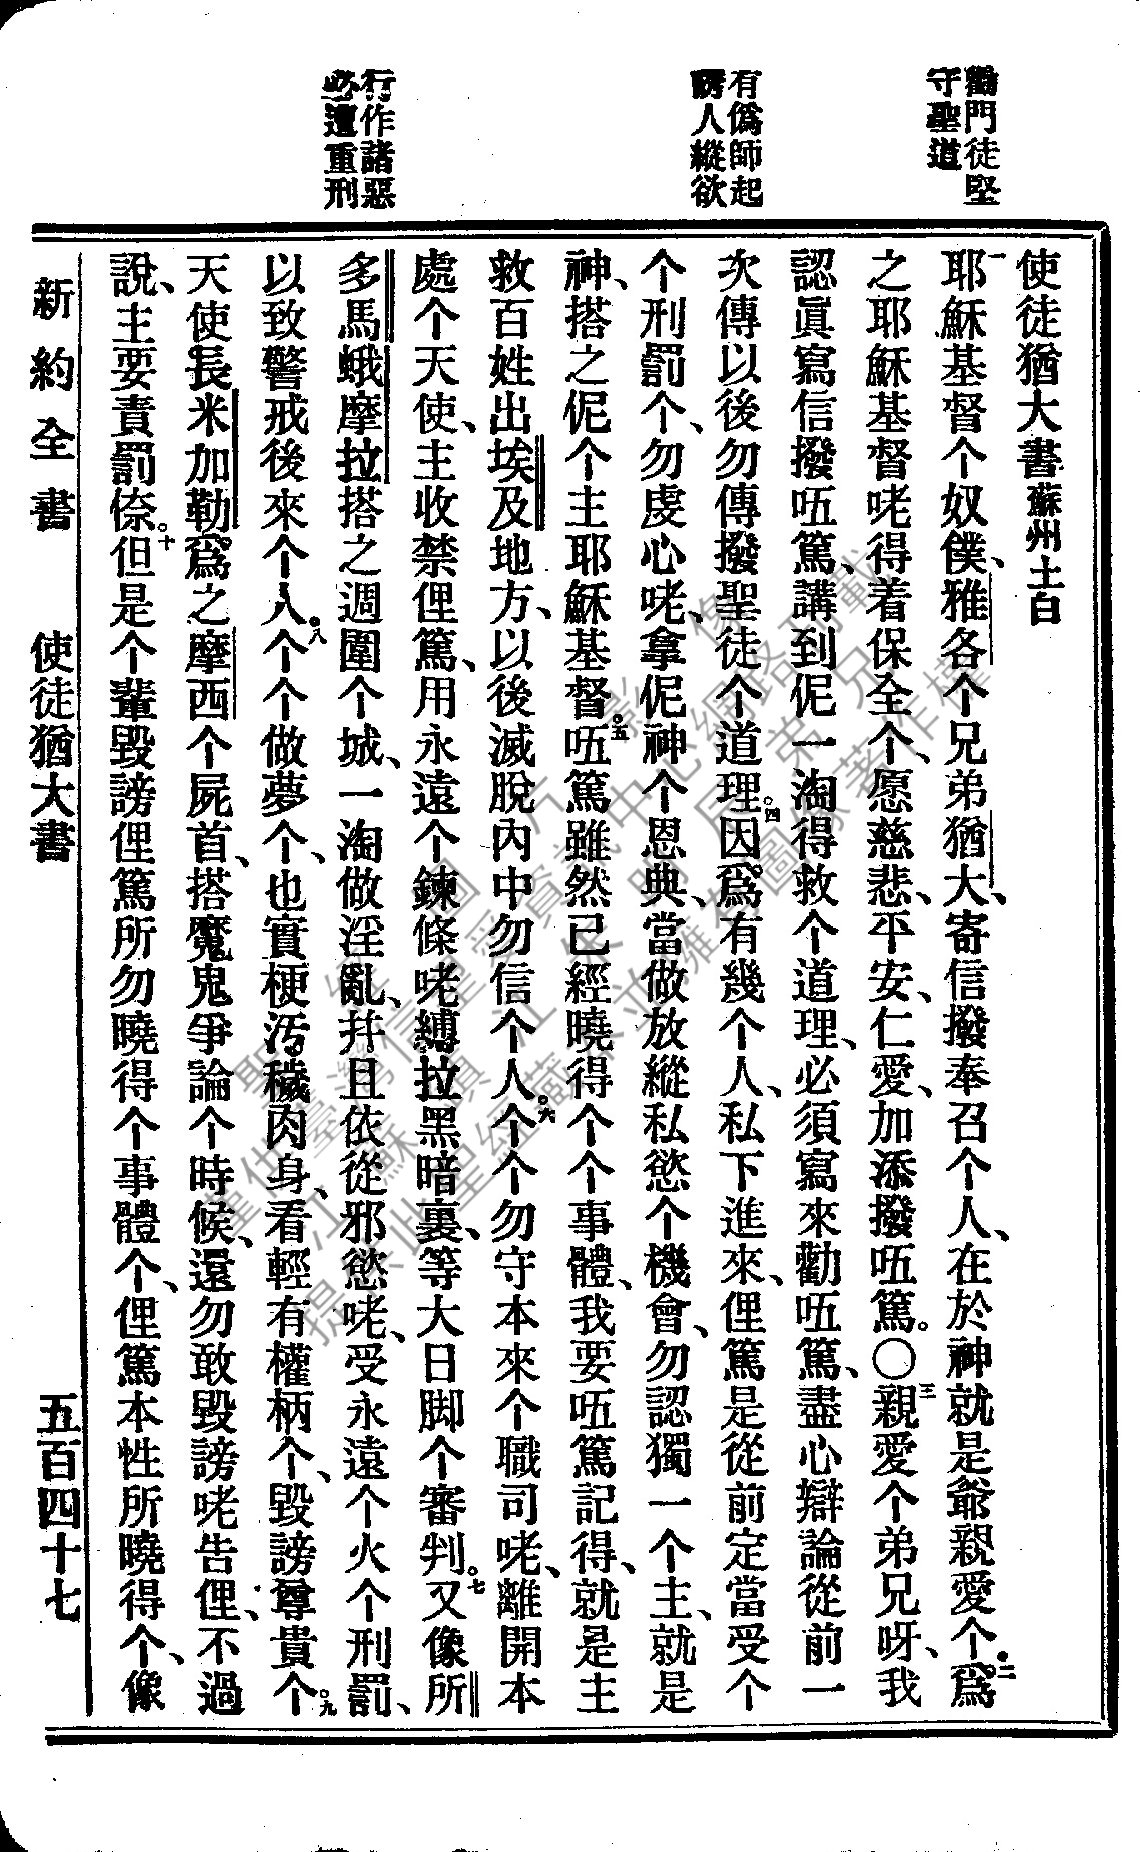 勸門徒堅
守聖道
有僞師起
誘人縱欲
行作諸惡
必遭重刑
使徒猶大書蘇州土白
一耶穌基督个奴僕、雅各个兄弟猶大、寄信撥奉召个人、在於神就是爺親愛个、爲
二之耶穌基督咾得着保全个、愿慈悲、平安、仁愛、加添撥㕶篤。〇三親愛个弟兄呀、我
認眞寫信撥㕶篤、講到伲一淘得救个道理、必須寫來勸㕶篤、盡心辯論從前一
次傳以後勿傳撥聖徒个道理。四因爲有幾个人、私下進來、俚篤是從前定當受个
个刑罰个、勿虔心咾、拿伲神个恩典、當做放縱私慾个機會、勿認獨一个主、就是
神、搭之伲个主耶穌基督。五㕶篤雖然已經曉得个个事體、我要㕶篤記得、就是主
救百姓出埃及地方、以後滅脫內中勿信个人。六个个勿守本來个職司咾、離開本
處个天使、主收禁俚篤、用永遠个鍊條咾縛拉黑暗裏、等大日脚个審判。七又像所
多馬蛾摩拉搭之週圍个城、一淘做淫亂、幷且依從邪慾咾、受永遠个火个刑罰、
以致警戒後來个人。八个个做夢个、也實梗汚穢肉身、看輕有權柄个、毀謗尊貴个。九
天使長米加勒、爲之摩西个屍首、搭魔鬼爭論个時候、還勿敢毀謗咾告俚、不過
說、主要責罰倷。十但是个輩毀謗俚篤所勿曉得个事體个、俚篤本性所曉得个、像
新約全書 使徒猶大書 五百四十七